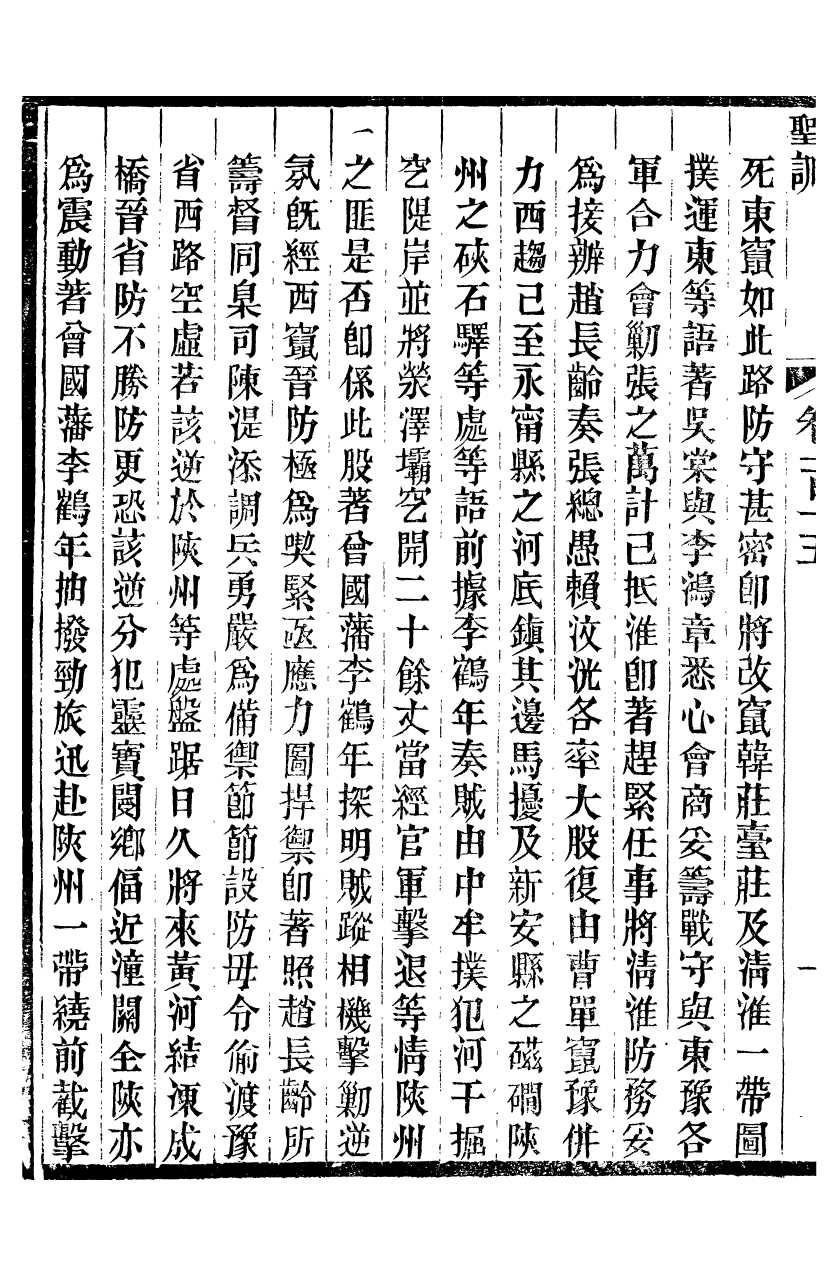 聖訓
卷二百一十五
一
死東竄如此路防守甚密卽將改竄韓莊臺莊及淸淮一帶圖
撲運東等語著吳棠與李鴻章悉心會商妥籌戰守與東豫各
軍合力會勦張之萬計已抵淮卽著趕緊任事將淸淮防務妥
爲接辦趙長齡奏張總愚賴汶洸各率大股復由曹單竄豫併
力西趨已至永甯縣之河底鎭其邊馬擾及新安縣之磁澗陝
州之硤石驛等處等語前據李鶴年奏賊由中牟撲犯河干掘
空隄岸並將滎澤壩空開二十餘丈當經官軍擊退等情陝州
之匪是否卽係此股著曾國藩李鶴年探明賊蹤相機擊勦逆
氛旣經西竄晉防極爲喫緊亟應力圖捍禦卽著照趙長齡所
籌督同臬司陳湜添調兵勇嚴爲備禦節節設防毋令偷渡豫
省西路空虛若該逆於陝州等處盤踞日久將來黃河結凍成
橋晉省防不勝防更恐該逆分犯靈寶閿鄕偪近潼關全陝亦
爲震動著曾國藩李鶴年抽撥勁旅迅赴陝州一帶繞前截擊